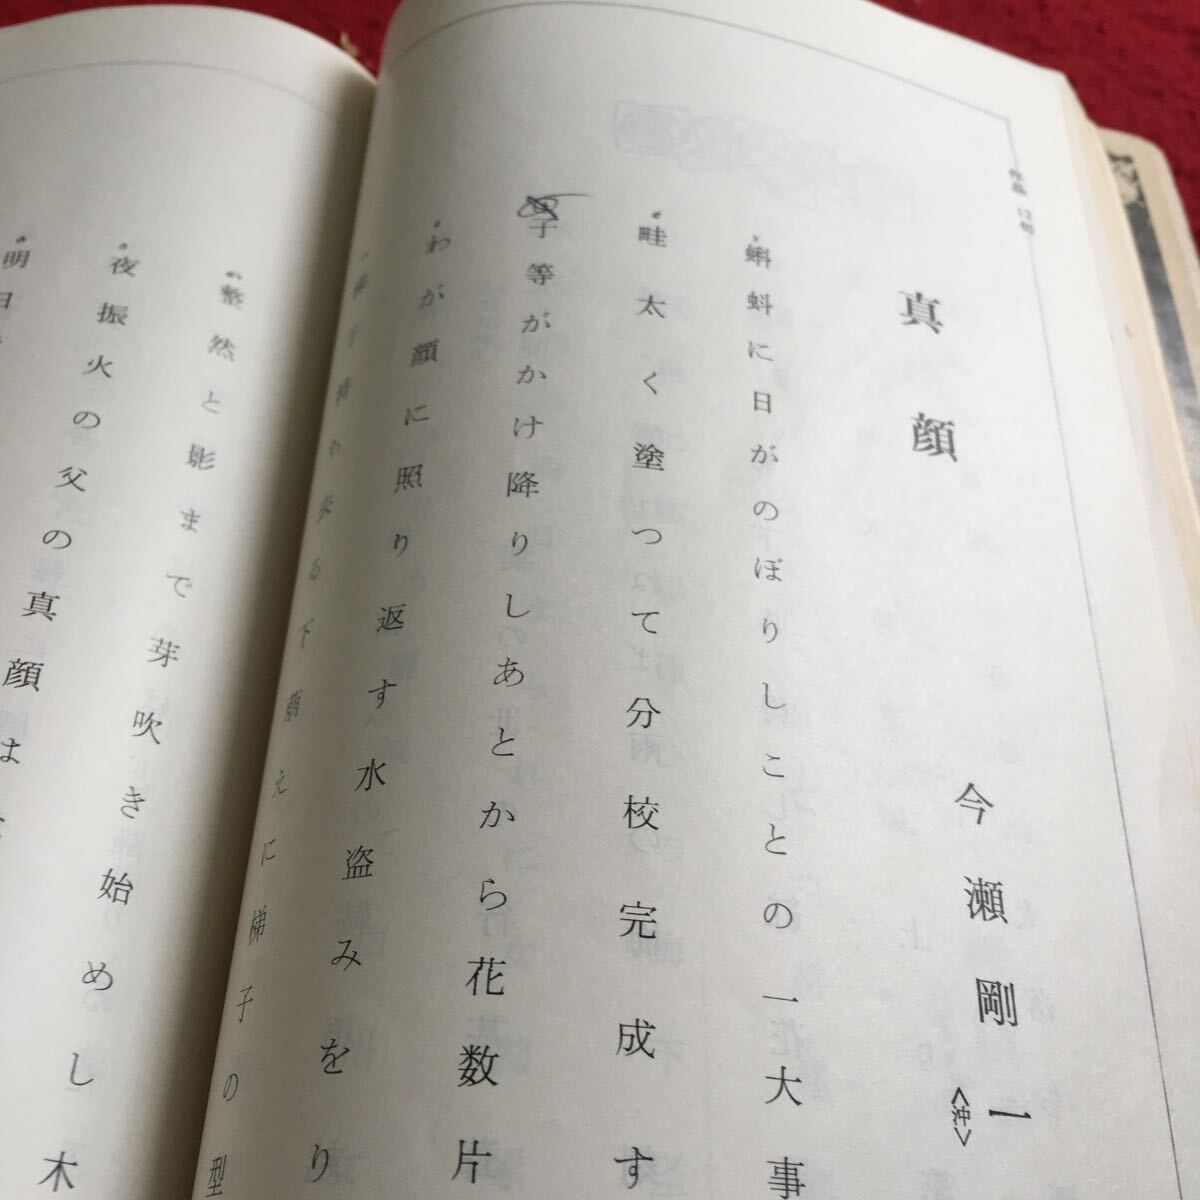 作品 12句
真顔
今瀬剛一
<沖>
蝌蚪に日がのぼりしことの一大事
畦太く塗つて分校完成す
子等がかけ降りしあとから花数片
わが顔に照り返す水盗みをり
梯子持ち来る下萠えに梯子の型
整然と影まで芽吹き始めし木
夜振火の父の真顔は
明日